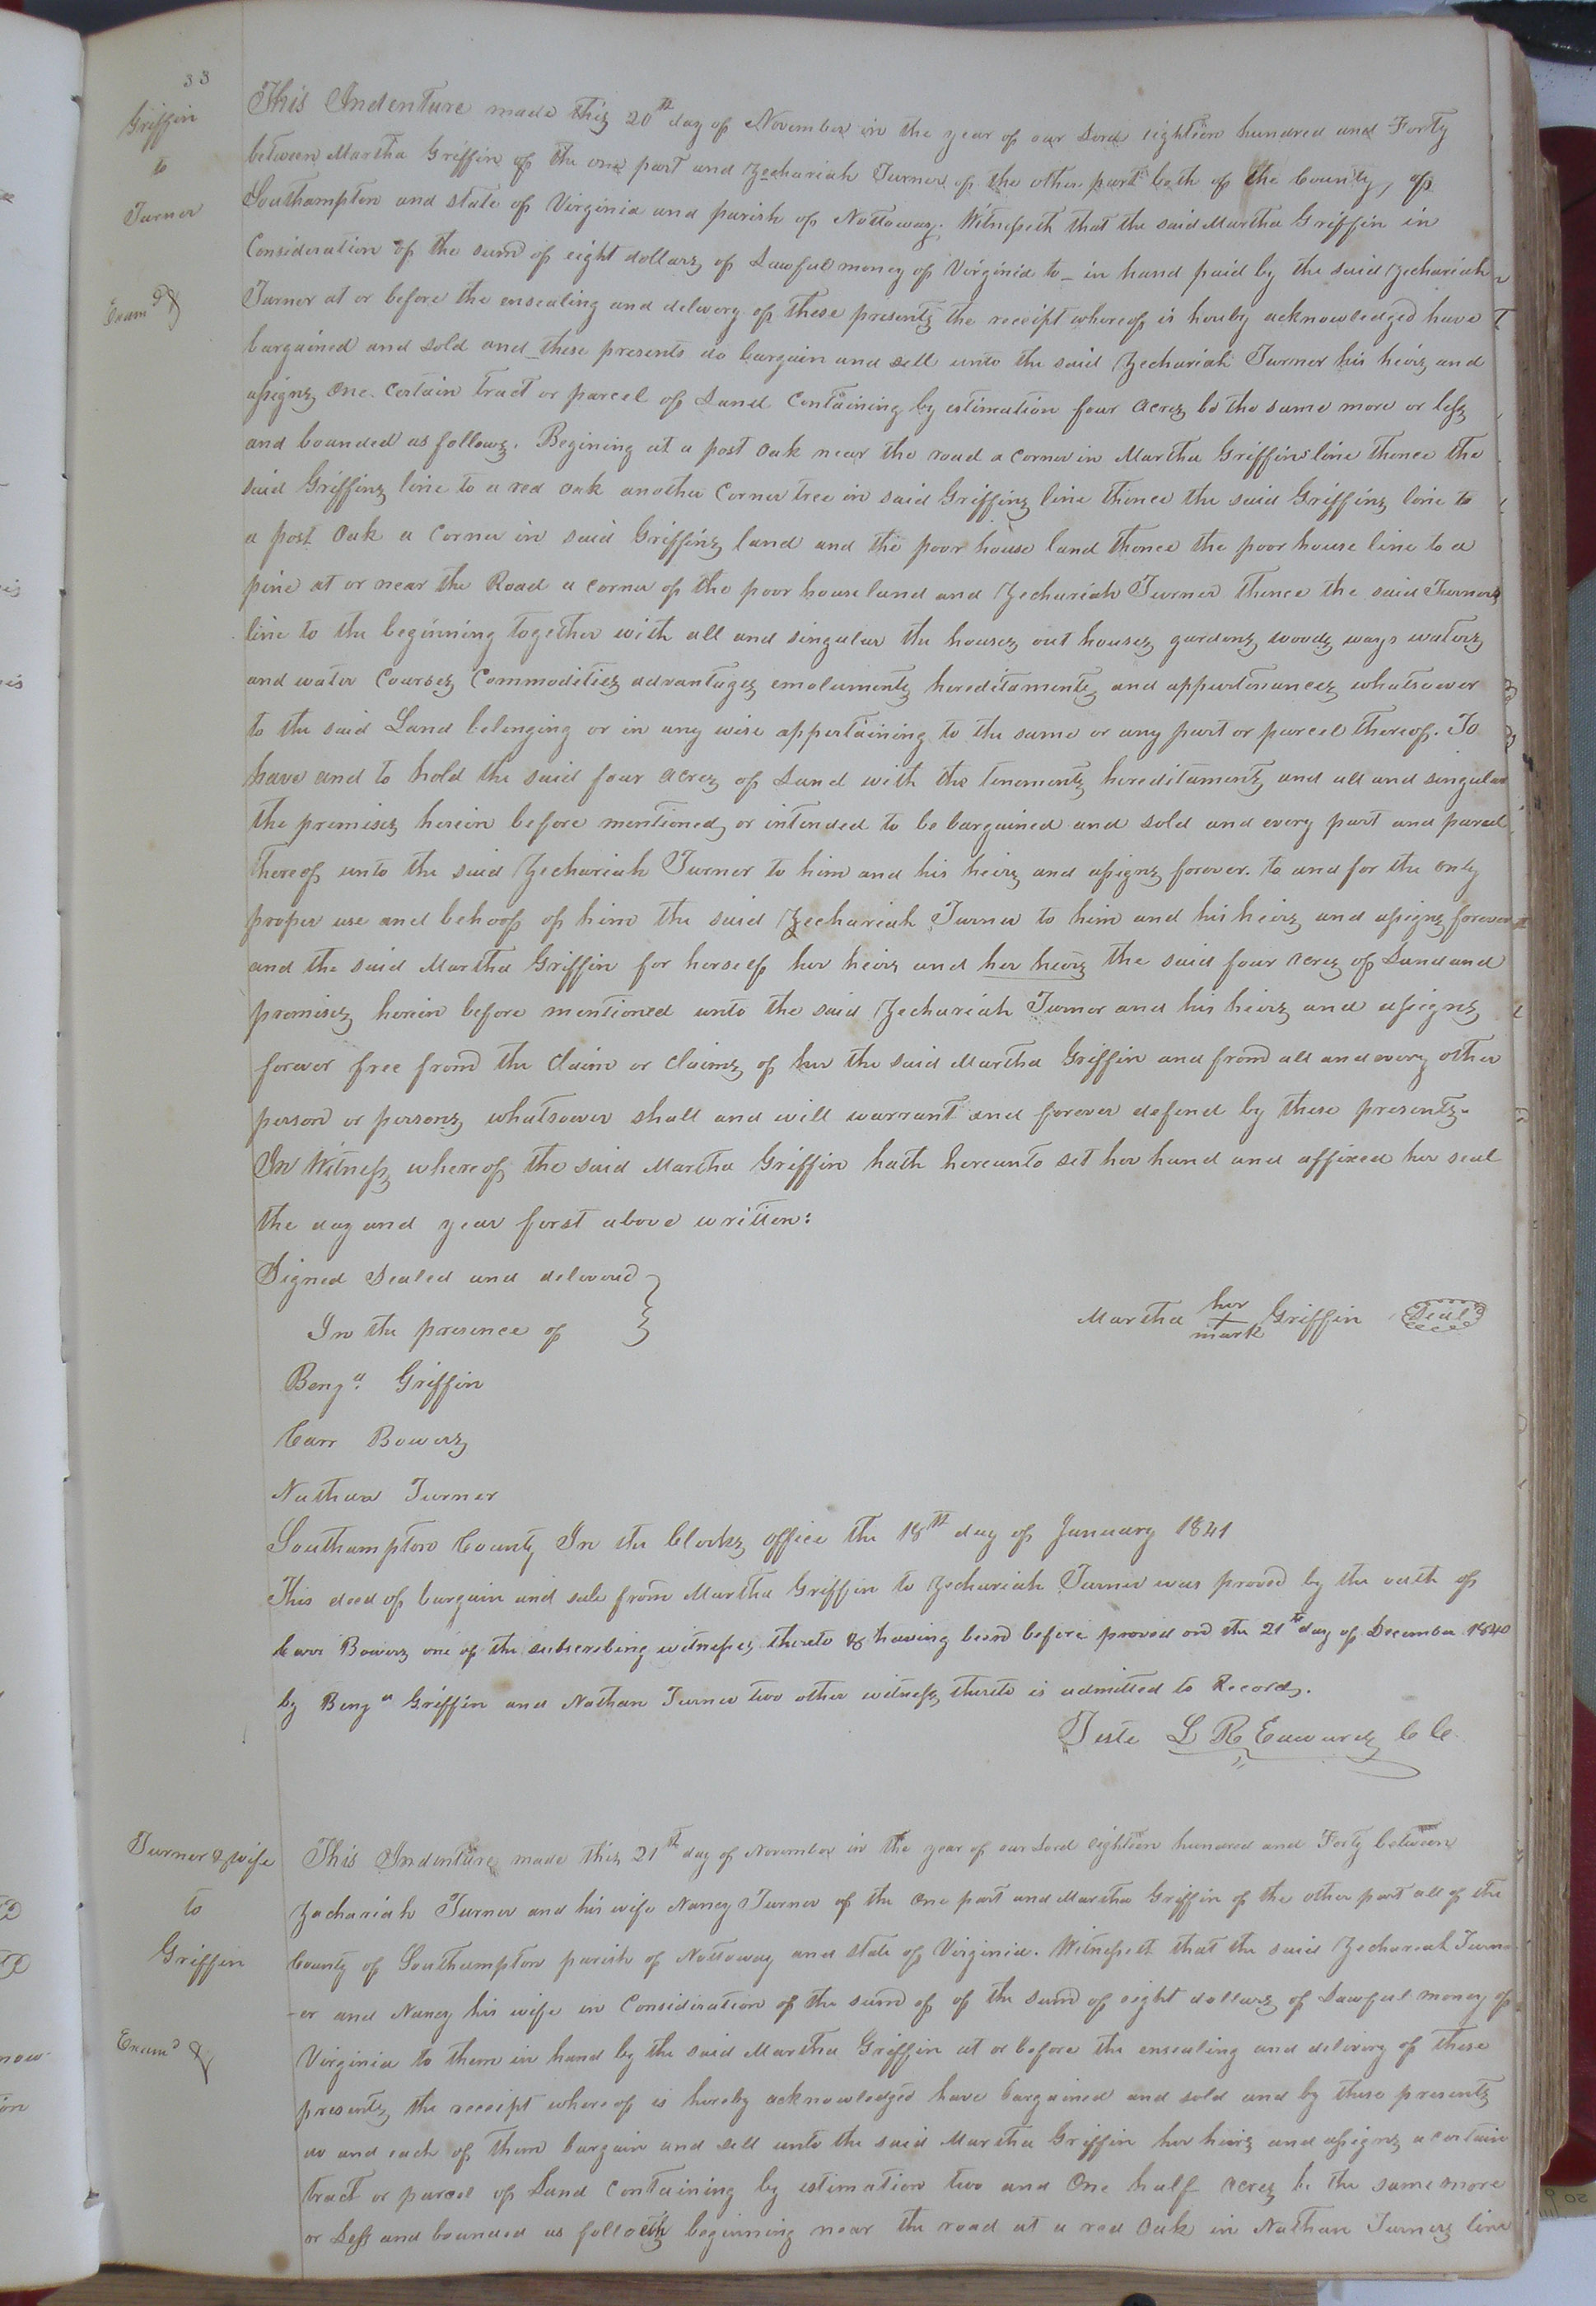 33
Griffin
to
Turner
Exam.d &
This Indenture made this 20th day of November in the year of our Lord eighteen hundred and Forty
between Martha Griffin of the one part and Zechariah Turner of the other part both of the County, of
Southampton and state of Virginia and parish of Nottoway. Witnesseth that the said Martha Griffin in
Consideration of the sum of eight dollars of Lawful money of Virginia to _ in hand paid by the said Zechariah
Turner at or before the ensealing and delivery of these presents the receipt whereof is hereby acknowledged have
bargained and sold and _ these presents do bargain and sell unto the said Zechariah Turner his heirs and
assigns one certain tract or parcel of Land Containing by estimation four acres be the same more or less
and bounded as follows. Begining at a post oak near the road a corner in Martha Griffins line thence the
said Griffins line to a red oak another Corner tree in said Griffins line thence the said Griffins line to
a post Oak a Corner in said Griffins land and the poor house land thence the poor house line to a
pine at or near the Road a corner of the poor house land and Zechariah Turner thence the said Turners
line to the beginning together with all and singular the houses out houses gardens woods ways waters
and water Courses Commodities advantages emoluments hereditaments and appurtenances whatsoever
to the said Land belonging or in any wise appertaining to the same or any part or parcel thereof. To
have and to hold the said four acres of Land with the tenements hereditaments and all and singular
the premises herein before mentioned or intended to be bargained and sold and every part and parcel
thereof unto the said Zechariah Turner to him and his heirs and assigns forever. to and for the only
proper use and behoof of him the said Zechariah Turner to him and his heirs and assigns forever
and the said Martha Griffin for herself her heirs and her heirs the said four acres of Land and
premises herein before mentioned unto the said Zechariah Turner and his heirs and assigns
forever free from the Claim or Claims of her the said Martha Griffin and from all and every other
person or persons whatsoever shall and will warrant and forever defend by these presents.
In Witness whereof the said Martha Griffin hath hereunto set her hand and affixed her seal
the day and year first above written:
Signed Sealed and delivered
In the presence of
Martha her + mark Griffin Seal
Benja. Griffin
Carr Bowers
Nathan Turner
Southampton County In the Clerks office the 18th day of January 1841
This deed of bargain and sale from Martha Griffin to Zechariah Turner was proved by the oath of
Carr Bowers one of the subscribing witnesses thereto & having been before proved on the 21st day of December 1840
by Benja Griffin and Nathan Turner two other witness thereto is admitted to Record.
Teste L R Edwards C C
Turner & wife
to
Griffin
Exam.d &
This Indenture made this 21st day of November in the year of our Lord eighteen hundred and Forty between
Zachariah Turner and his wife Nancy Turner of the One part and Martha Griffin of the other part all of the
County of Southampton parish of Nottoway and state of Virginia. Witnesseth that the said Zechariah Turn
-er and Nancy his wife in Consideration of the sum of of the sum of eight dollars of Lawful money of
Virginia to them in hand by the said Martha Griffin at or before the ensealing and delivery of these
presents the receipt whereof is hereby acknowledged have bargained and sold and by these presents
do and each of them bargain and sell unto the said Martha Griffin her heirs and assigns a certain
tract or parcel of Land Containing by estimation two and One half acres be the same more
or Less and bounded as followeth beginning near the road at a red Oak in Nathan Turners line